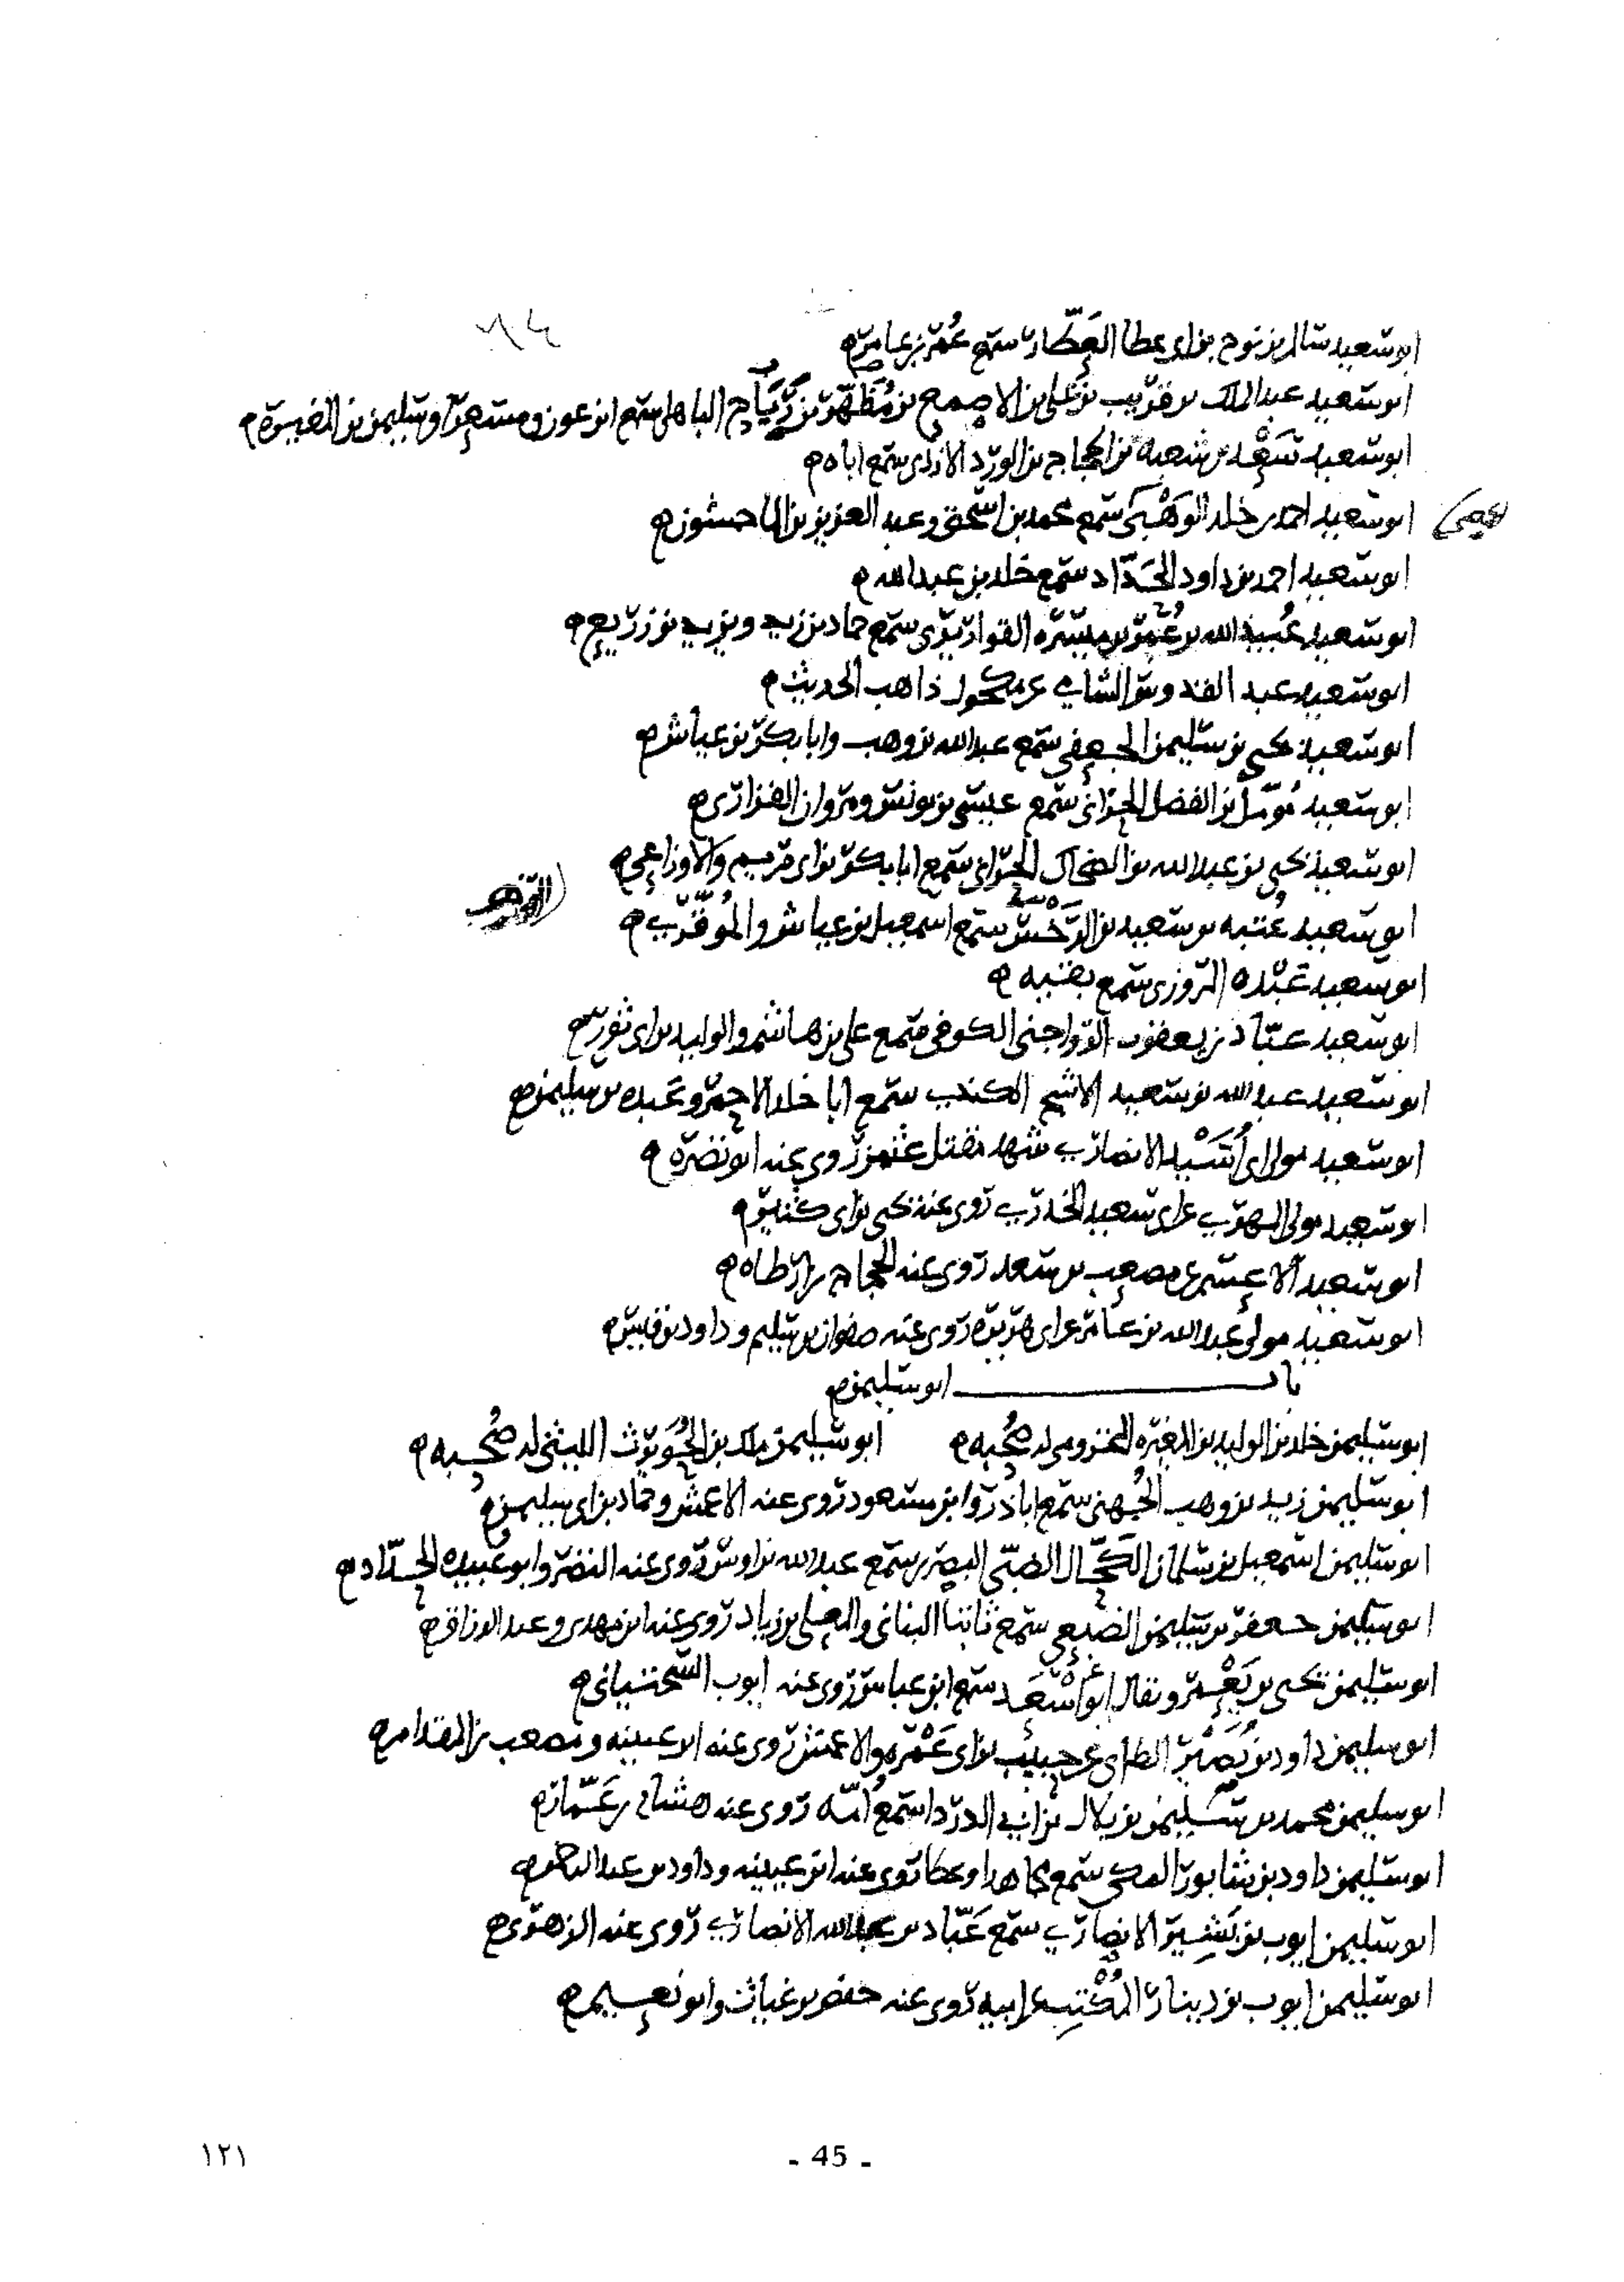 ابو سعيد سالم بن نوح بن ابى عطا العطار سمع عمر بن عامر
ابو سعيد عبد الملك بن قريب بن على بن الاصمع بن مظهر بن رياح الباهلى سمع ابن عون ومسعرا وسليمن بن المغيرة
ابو سعيد سعد بن شعبه بن الحجاج بن الورد الازدى سمع اباه
ابو سعيد احمد بن خلد الوهبى سمع محمد بن اسحق وعبد العزيز بن الماجشون
ابو سعيد احمد بن داود الحداد سمع خلد بن عبد الله
ابو سعيد عبيد الله بن عمر بن ميسره القواريرى سمع حماد بن زيد ويزيد بن زريع
ابو سعيد عبد القدوس الشامي عن مكحول ذاهب الحديث
ابو سعيد يحيى بن سليمن الجعفى سمع عبد الله بن وهب وابا بكر بن عياش
ابو سعيد مؤمل بن الفضل الحرانى سمع عيسى بن يونس ومروان الفزارى
ابو سعيد يحيى بن عبد الله بن الضحاك الحرانى سمع ابا بكر بن ابى مريم والاوزاعى
ابو سعيد عتبه بن سعيد بن الرخس سمع اسمعيل بن عياش والموقري
ابو سعيد عبده المروزى سمع بقيه
ابو سعيد عباد بن يعقوب الرواجنى الكوفى سمع على بن هاشم والوليد بن ابى ثور
ابو سعيد عبد الله بن سعيد الاشج الكندي سمع ابا خلد الاحمر وعبده بن سليمن
ابو سعيد مولى ابى اسيد الانصاري شهد مقتل عثمن روى عنه ابو نضره
ابو سعيد مولى المهري عن ابى سعيد الخدري روى عنه يحيى بن ابى كثير
ابو سعيد الاعسم عن مصعب بن سعد روى عنه الحجاج بن ارطاه
ابو سعيد مولى عبد الله بن عامر عن ابى هريره روى عنه صفوان بن سليم وداود بن قيس
باب ابو سليمن
ابو سليمن خلد بن الوليد بن المغيره المخزومى له صحبه ابو سليمن ملك بن الحويرث الليثى له صحبه
ابو سليمن زيد بن وهب الجهنى سمع اباذر وابن مسعود روى عنه الاعمش وحماد بن ابى سليمن
ابو سليمن اسمعيل بن سلمان الكحال الضبى البصرى سمع عبد الله بن اوس روى عنه النضر وابو عبيده الحداد
ابو سليمن جعفر بن سليمن الضبعي سمع ثابتا البنانى والمعلى بن زياد روى عنه ابن مهدى وعبد الرزاق
ابو سليمن يحيى بن يعمر ويقال ابو سعيد سمع ابن عباس روى عنه ايوب السختيانى
ابو سليمن داود بن نصير الطاى عن حبيب بن ابى عمره والاعمش روى عنه ابن عيينه ومصعب بن المقدام
ابو سليمن محمد بن سليمن بن بلال بن ابي الدردا سمع امه روى عنه هشام بن عمار
ابو سليمن داود بن شابور المكي سمع مجاهدا وعطا روى عنه ابن عيينه وداود بن عبد الرحمن
ابو سليمن ايوب بن بشير الانصاري سمع عباد بن عبد الله الانصاري روى عنه الزهرى
ابو سليمن ايوب بن دينار المكتب عن ابيه روى عنه حفص بن غياث وابو نعيم
- 45 -
١٢١